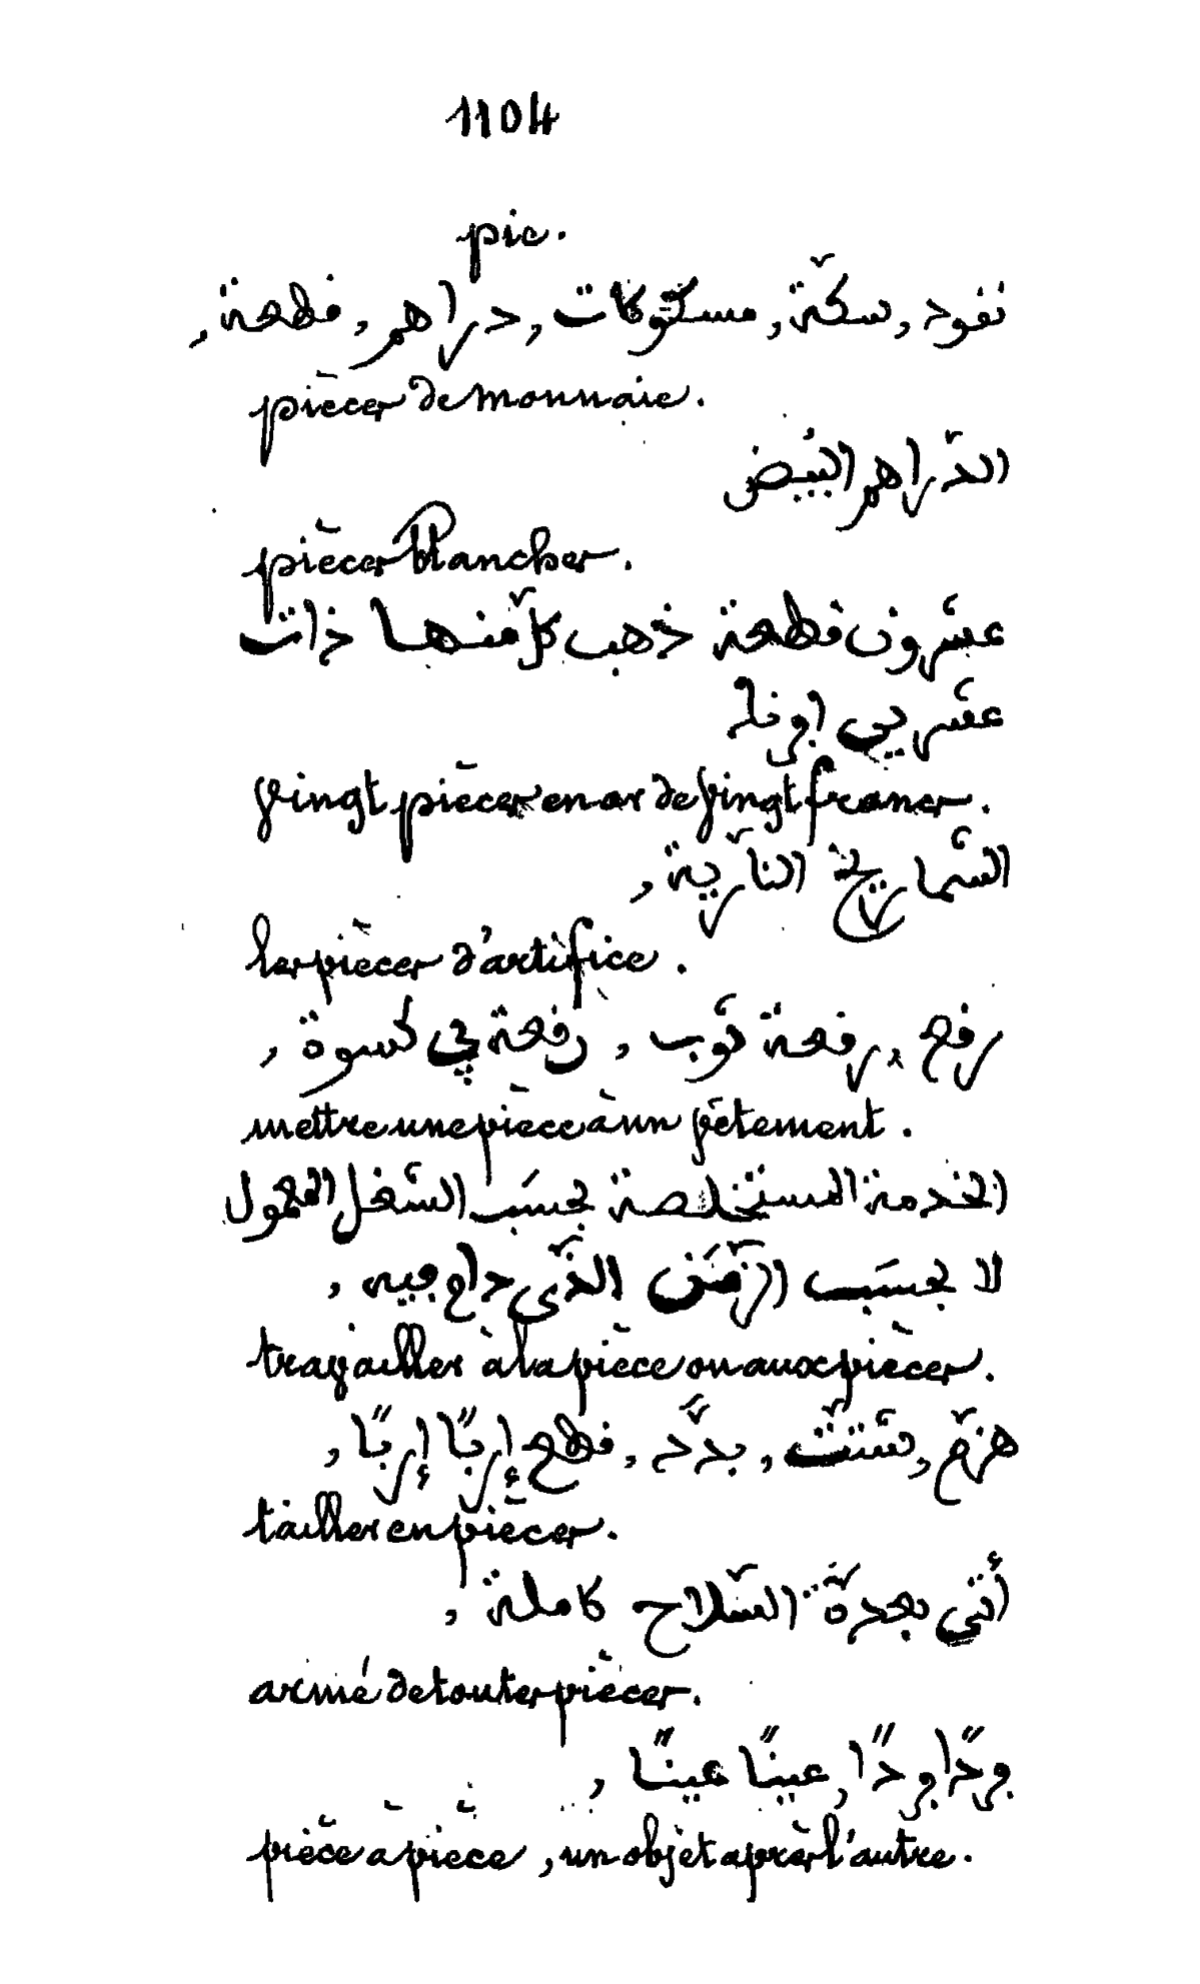 1104
pie.
نقود , سكّة , مسكوكات , دراهم , قطعة ,
pièces de monnaie.
الدّراهم البُيض
pièces blanches.
عشرون قطعة ذهب كلّ منها ذات
عشريى افرنك
vingt pièces en or de vingt francs.
الشّماريخ النّاريّة ,
les pièces d'artifice.
رقع , رقعة ثوب , رقعة في كسوة ,
mettre une pièce à un vêtement.
الخدمة المستخلصة بحسَب الشّغل المعمول
لا بحسَب الزّمَن الذّي داع فيه ,
travailler à la pièce ou aux pièces.
هزّم , شتّت , بدّد , قطع إربًا إربًا ,
tailler en pièces.
أتى بعدّة السّلاح كاملة ,
armé de toutes pièces.
فردًا فردًا , عينًا عينًا ,
pièce à pièce, un objet après l'autre.